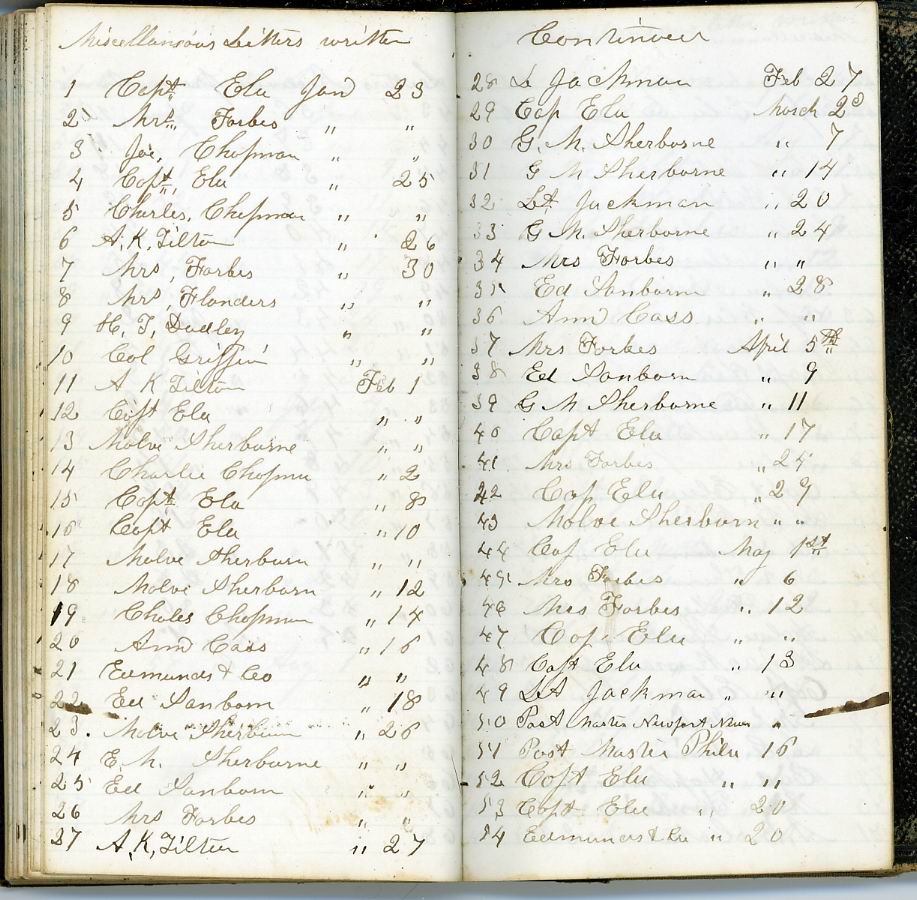 Miscellaneous Letters written
1 Capt Ela Jan 23
2 Mrs. Forbes " "
3 Joe, Chapman " "
4 Capt, Ela " 25
5 Charles, Chapman " "
6 A. K, Tilton " 26
7 Mrs, Forbes " 30
8 Mrs, Flanders " "
9 H. T, Dudley " "
10 Col Griffin " "
11 A K Tilton Feb 1
12 Capt Ela " "
13 Molve Sherborne " "
14 Charlie Chapman " 2
15 Capt Ela " 8
16 Capt Ela " 10
17 Molve Sherborn " "
18 Molve Sherborn " 12
19 Charles Chapman " 14
20 Ann Cass " 16
21 Edmunds & Co " "
22 Ed Sanborn " 18
23. Molve Sherburn " 26
24 E. M. Sherborne " "
25 Ed Sanborn " "
26 Mrs Forbes " "
27 A, K, Tilton " 27
Continued
28 Lt Jackman Feb 27
29 Cap Ela March 2d
30 G. M. Sherborne " 7
31 G M Sherborne " 14
32 Lt Jackman " 20
33 G M. Sherborne " 24
34 Mrs Forbes " "
35 Ed Sanborn " 28
36 Ann Cass " "
37 Mrs Forbes April 5th
38 Ed Sanborn " 9
39 G M Sherborne " 11
40 Capt Ela " 17
41 Mrs Forbes " 25
42 Cap Ela " 29
43 Molve Sherborn " "
44 Cap Ela May 1st
45 Mrs Forbes " 6
46 Mrs Forbes " 12
47 Cap Ela " "
48 Capt Ela " 13
49 Lt Jackman " "
50 Post Master Newport News "
51 Post Master Phila 16
52 Capt Ela " "
53 Capt Ela " 20
54 Edmunds & Co " 20